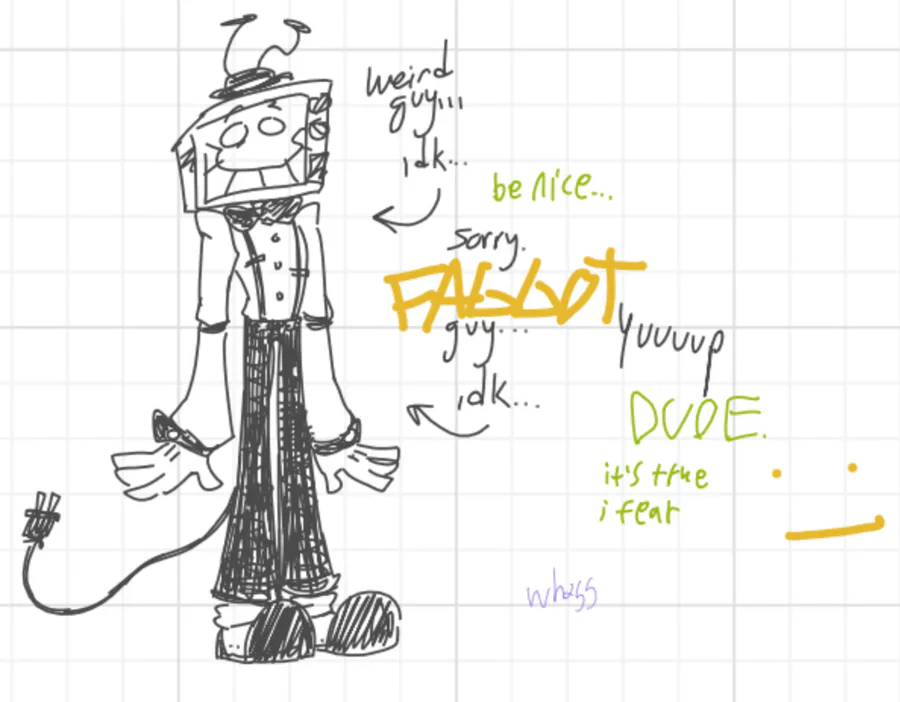 weird
guy...
idk...
be nice...
sorry.
FAGGOT
guy...
idk...
yuuuup
DUDE.
it's true
i fear